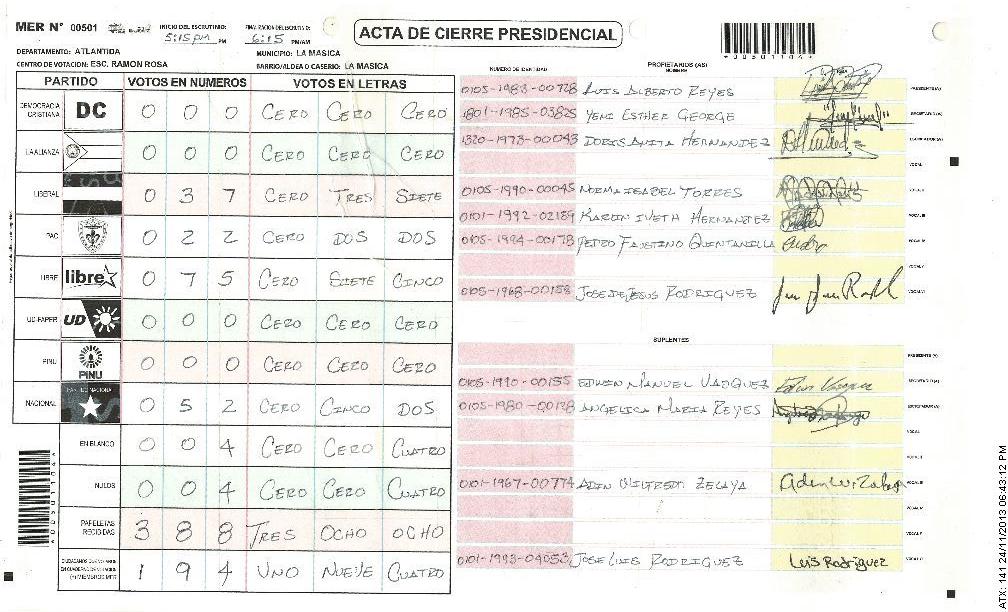 MER N° 00501 INICIO DEL ESCRUTINIO: 5:15 PM PM FINALIZACION DEL ESCRUTINIO: 6:15 PM/AM
ACTA DE CIERRE PRESIDENCIAL
*00501104*
DEPARTAMENTO: ATLANTIDA MUNICIPIO: LA MASICA
CENTRO DE VOTACION: ESC. RAMON ROSA BARRIO/ALDEA O CASERIO: LA MASICA
PARTIDO VOTOS EN NUMEROS VOTOS EN LETRAS
DEMOCRACIA CRISTIANA DC 0 0 0 CERO CERO CERO
LA ALIANZA 0 0 0 CERO CERO CERO
LIBERAL 0 3 7 CERO TRES SIETE
PAC 0 2 2 CERO DOS DOS
LIBRE libre 0 7 5 CERO SIETE CINCO
UD-FAPER UD 0 0 0 CERO CERO CERO
PINU PINU 0 0 0 CERO CERO CERO
NACIONAL 0 5 2 CERO CINCO DOS
EN BLANCO 0 0 4 CERO CERO CUATRO
NULOS 0 0 4 CERO CERO CUATRO
PAPELETAS RECIBIDAS 3 8 8 TRES OCHO OCHO
1 9 4 UNO NUEVE CUATRO
*00501104*
NUMERO DE IDENTIDAD PROPIETARIOS (AS) NOMBRE
0105-1983-00728 LUIS ALBERTO REYES PRESIDENTE (A)
1801-1985-03825 YENI ESTHER GEORGE SECRETARIO (A)
1320-1973-00043 DORIS ANITA HERNANDEZ ESCRUTADOR (A)
VOCAL I
0105-1990-00045 NORMA ISABEL TORRES VOCAL II
0101-1992-02189 KAREN IVETH HERNANDEZ VOCAL III
0105-1994-00178 PEDRO FAUSTINO QUINTANILLA VOCAL IV
VOCAL V
0105-1968-00158 JOSE DE JESUS RODRIGUEZ VOCAL VI
SUPLENTES
PRESIDENTE (A)
0105-1990-00155 EDWIN MANUEL VASQUEZ Edwin Vasquez SECRETARIO (A)
0105-1980-00128 ANGELICA MARIA REYES ESCRUTADOR (A)
VOCAL I
VOCAL II
0101-1967-00774 ADIN WILFREDI ZELAYA VOCAL III
VOCAL IV
VOCAL V
0101-1993-04053 JOSE LUIS RODRIGUEZ Luis Rodriguez VOCAL VI
ATX: 141 24/11/2013 06:43:12 PM